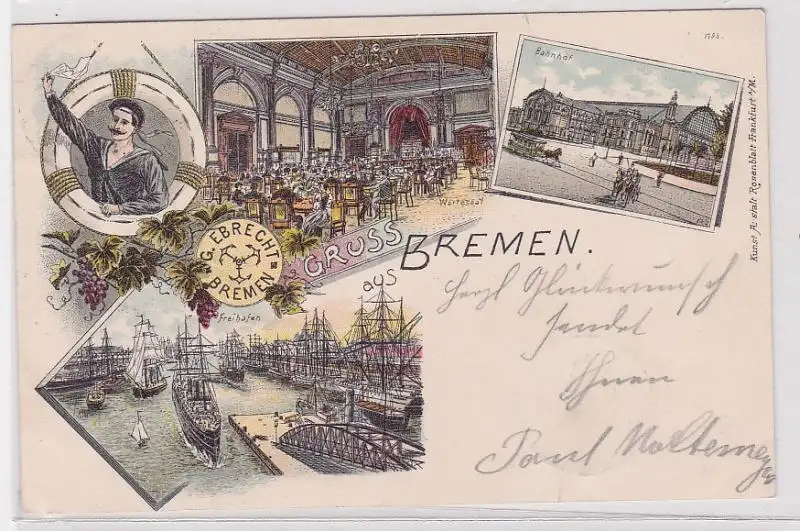 1793.
Bahnhof
Wartesaal
G. EBRECHT
BREMEN
GRUSS
aus
BREMEN.
Freihafen
Kunst A: stalt Rosenblatt Frankfurt a/M.
Herzl Glückwunsch
sendet
Ihnen
Paul